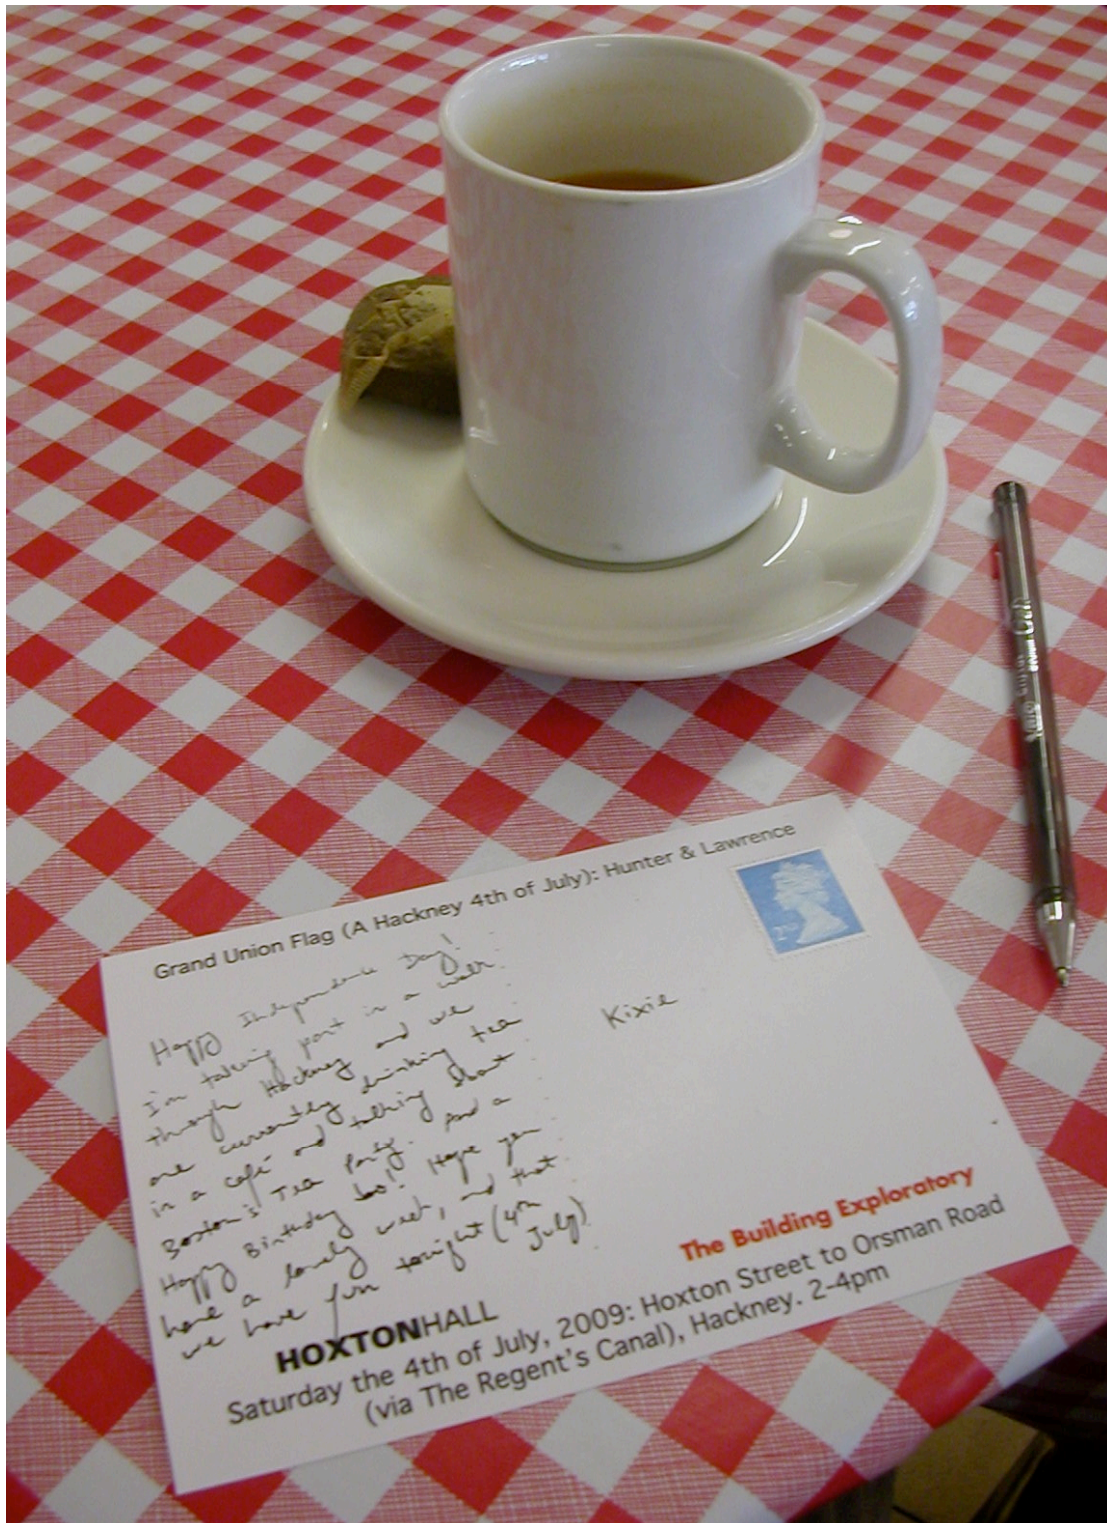 Grand Union Flag (A Hackney 4th of July): Hunter & Lawrence
2ND
Happy Independence Day!
I'm taking part in a walk
through Hackney and we
are currently drinking tea
in a café and talking about
Boston's Tea Party. And a
Happy Birthday too! Hope you
have a lovely week, and that
we have fun tonight (4th
July)
Kixie
The Building Exploratory
HOXTONHALL
Saturday the 4th of July, 2009: Hoxton Street to Orsman Road
(via The Regent's Canal), Hackney. 2-4pm